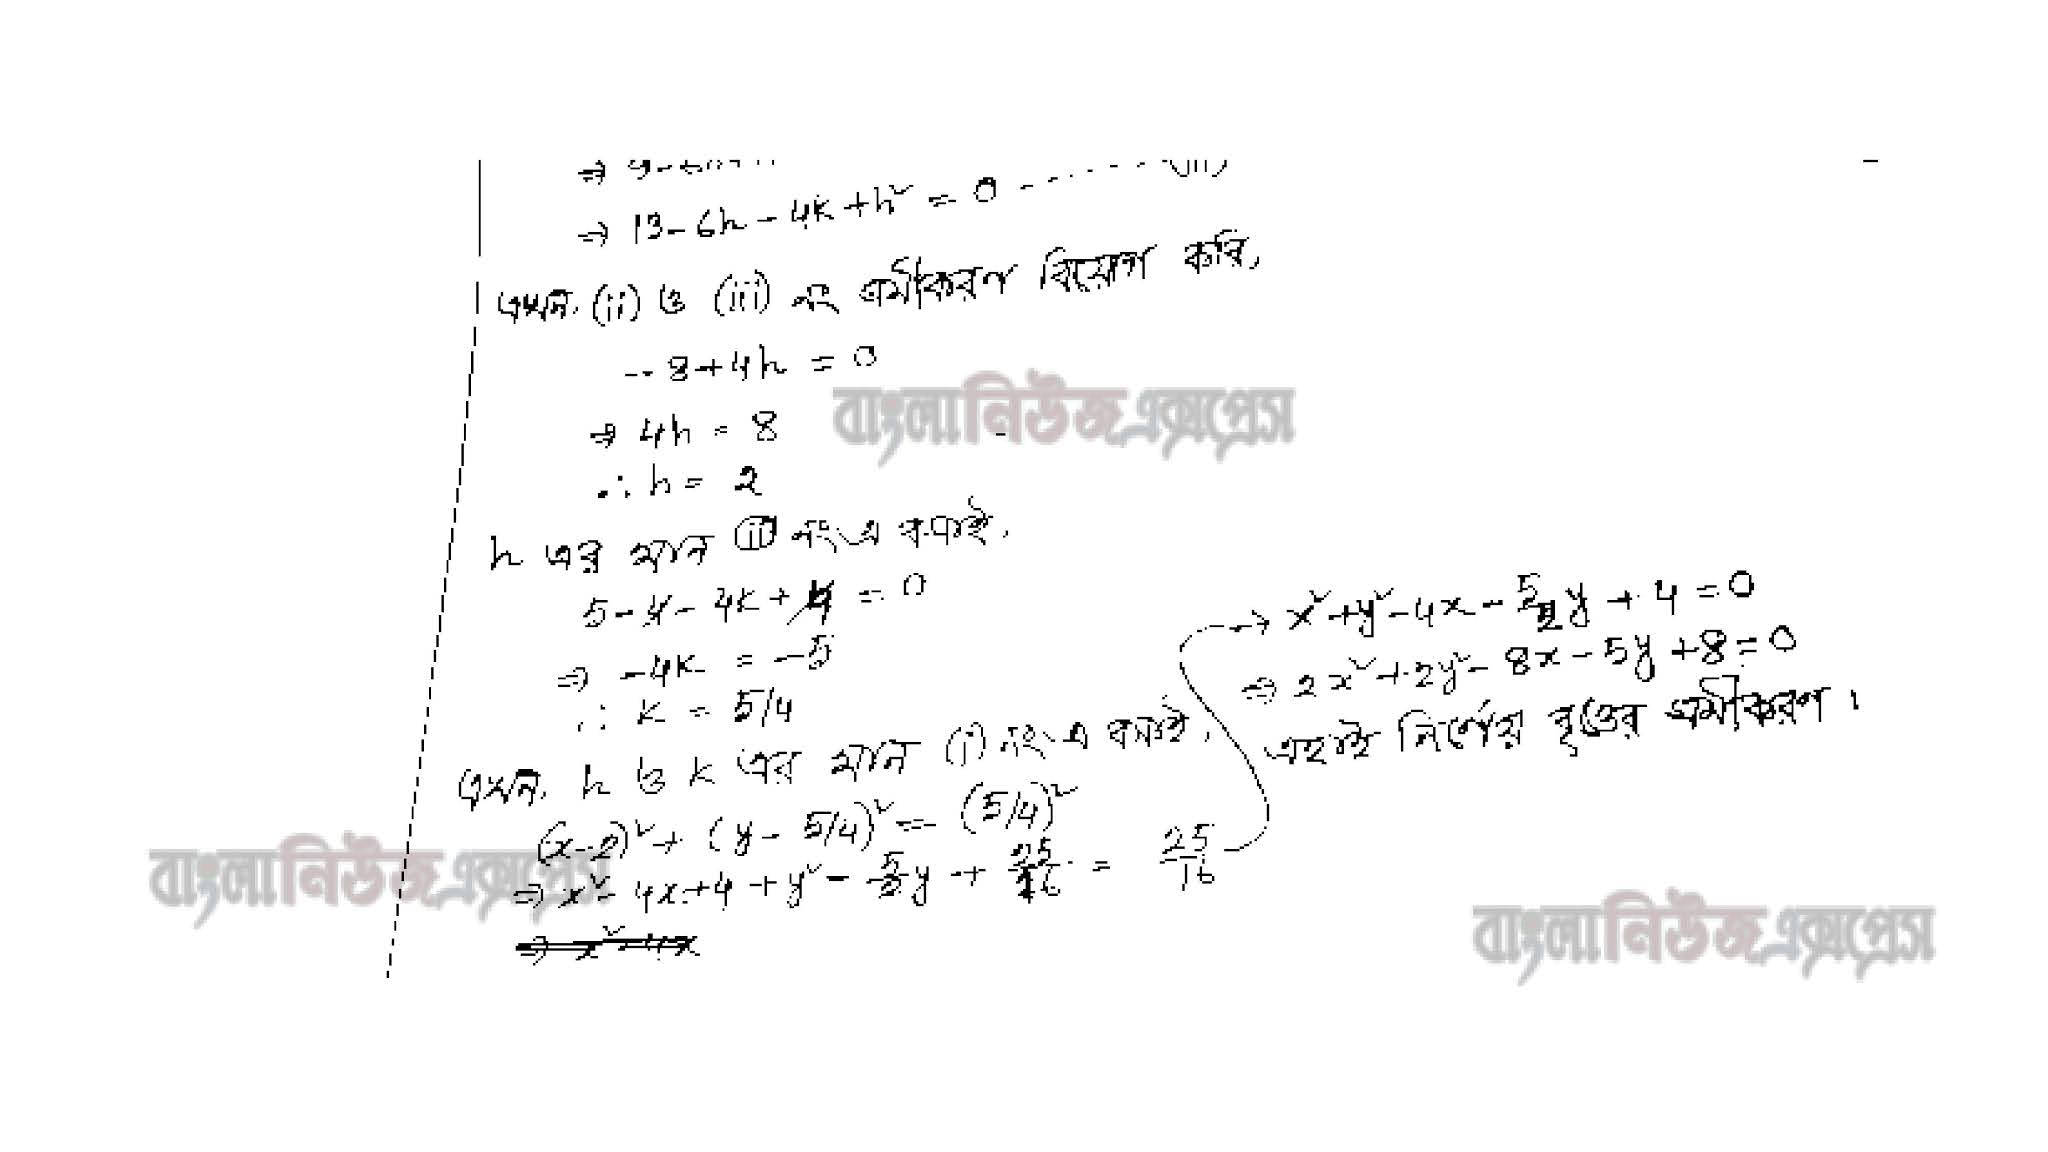 ⇒ 13 - 6h - 4k + h² = 0 ------- (iii)
এখন, (ii) ও (iii) নং সমীকরণ বিয়োগ করি,
-8 + 4h = 0
⇒ 4h = 8
∴ h = 2
h এর মান (ii) নং এ বসাই,
5 - 4 - 4k + 4 = 0
⇒ -4k = -5
∴ k = 5/4
এখন, h ও k এর মান (i) নং এ বসাই,
(x-2)² + (y - 5/4)² = (5/4)²
⇒ x² - 4x + 4 + y² - 5/2 y + 25/16 = 25/16
⇒ x² - 4x
→ x² + y² - 4x - 5/2 y + 4 = 0
⇒ 2x² + 2y² - 8x - 5y + 8 = 0
এহাই নির্ণেয় বৃত্তের সমীকরণ।
বাংলানিউজএক্সপ্রেস
বাংলানিউজএক্সপ্রেস
বাংলানিউজএক্সপ্রেস